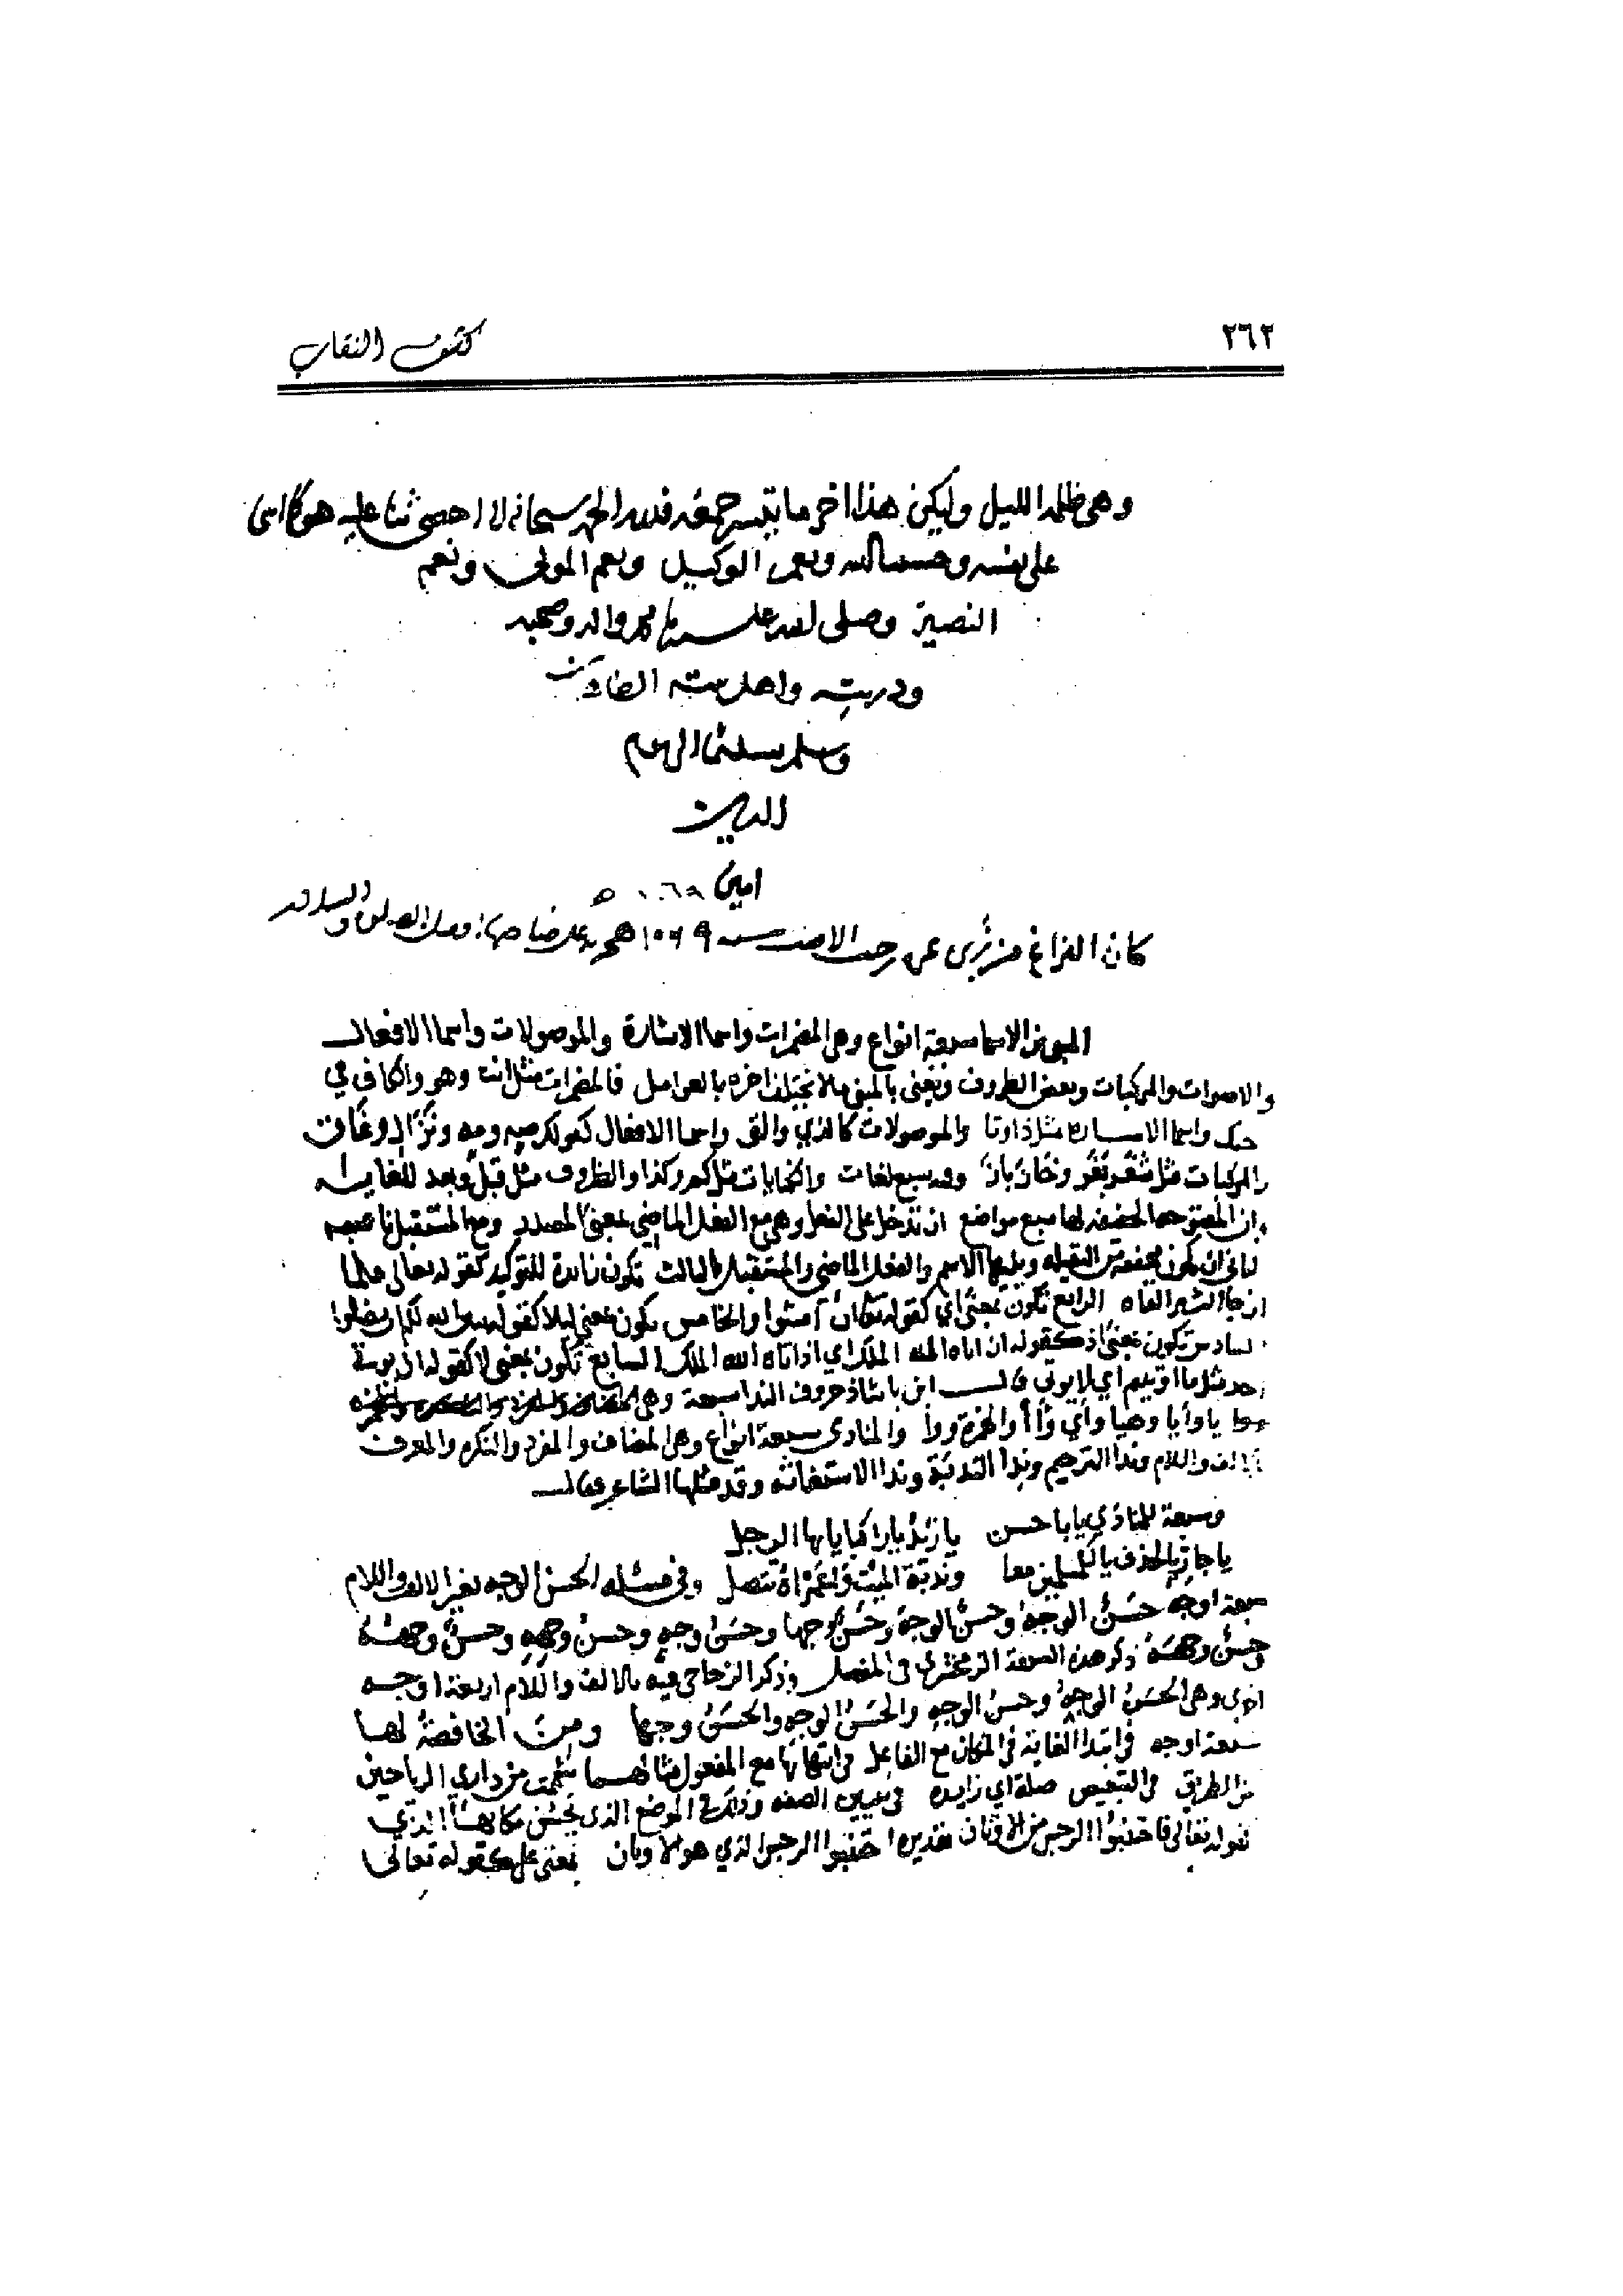 ٢٦٢
كشف النقاب
وهي ظلمة الليل وليكن هذا اخر ما تيسر جمعه فلله الحمد سبحانه لا احصي ثنا عليه هو كما اثنى
على نفسه وحسبنا الله ونعم الوكيل ونعم المولى ونعم
النصير وصلى الله على سيدنا محمد واله وصحبه
وذريته واهل بيته
وسلم تسليما الى يوم
الدين
امين ١٠٦٩ هـ
كان الفراغ من عن رجب الاصب سنة ١٠٦٩ هجرية على صاحبها افضل الصلوة والسلام
المبني من الاسما سبعة انواع وهي المضمرات واسما الاشارة والموصولات واسما الافعال
والاصوات والمركبات وبعض الظروف ونعني بالمبني ما لا يختلف اخره بالعوامل فالمضمرات مثل انت وهو والكاف في
واسما الاشارة مثل ذا وتا والموصولات كالذي والتي واسما الافعال كقولك صه ومه ونزال وغاق
والمركبات مثل شغر بغر وخاز باز وفيه سبع لغات والكنايات مثل كم وكذا والظروف مثل قبل وبعد للغاية
وان المفتوحة المخففة لها سبع مواضع ان تدخل على الفعل وهي مع الفعل الماضي بمعنى المصدر ومع المستقبل ناصبه
الثاني ان تكون مخففة من الثقيلة ويليها الاسم والفعل الماضي والمستقبل الثالث تكون زايدة للتوكيد كقوله تعالى فلما
ان جا البشير القاه الرابع تكون بمعنى اي كقوله تعالى ان امشوا والخامس تكون بمعنى ليلا كقوله يبين الله لكم ان تضلوا
السادس تكون بمعنى اذ كقوله ان اتاه الله الملك اي اذ اتاه الله الملك السابع تكون بمعنى لا كقوله ان يوتى
احد مثل ما اوتيتم اي لا يوتى قال ابن بابشاذ حروف الندا سبعة وهي
يا وايا وهيا واي وآ أ والهمزة ووا والمنادى سبعة انواع وهي المضاف والمفرد والنكرة والمعرف
بالالف واللام وندا الترخيم وندا الندبة وندا الاستغاثه وقد مثلها الشاعر فقال
وسبعة للمنادي يا با حسن يا زيد يا راكبا يا ايها الرجل
يا جار بالحذف يا للمسلمين معا وندبة الميت واعمراه تتصل وفي مسئلة الحسن الوجه بغير الالف واللام
سبعة اوجه حسن الوجه وحسن الوجه وحسن وجها وحسن وجه وحسن وجهه وحسن وجهه
وحسن وجهه ذكر هذه السبعة الزمخشري في المفصل وذكر الزجاجي فيه بالالف واللام اربعة اوجه
اخرى وهي الحسن الوجه وحسن الوجه والحسن الوجه والحسن وجها ومن الخافضة لها
سبعة اوجه في ابتدا الغاية في المكان مع الفاعل في انتهائها مع المفعول مثالهما شممت من داري الرياحين
من الطريق في التبعيض صلة اي زايده في تبيين الصفه وذلك في الموضع الذي يحسن مكانها الذي
كقوله تعالى فاجتنبوا الرجس من الاوثان تقديره اجتنبوا الرجس الذي هو الاوثان بمعنى على كقوله تعالى